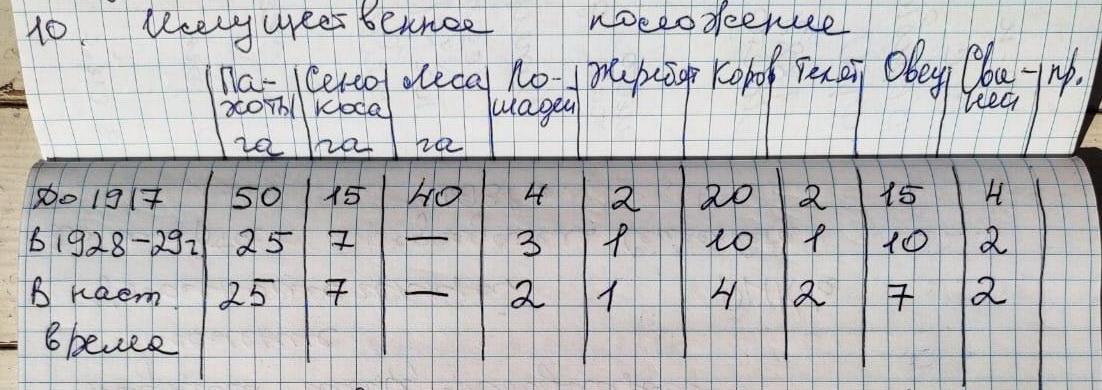 10. Имущественное положение
Па- Сено Леса Ло- Жеребят Коров Телят Овец Сви- пр.
хоты коса шадей ней
га га га
До 1917 50 15 40 4 2 20 2 15 4
В 1928-29г. 25 7 — 3 1 10 1 10 2
В наст. 25 7 — 2 1 4 2 7 2
время